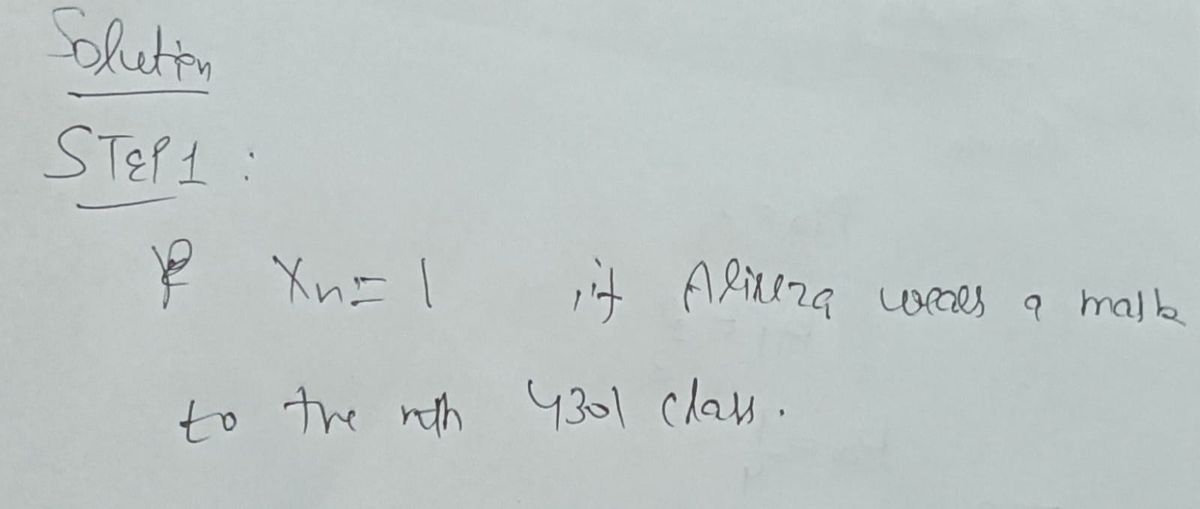 Solution
STEP 1 :
Xn = 1 , if Alireza wears a mask
to the nth 4301 class.